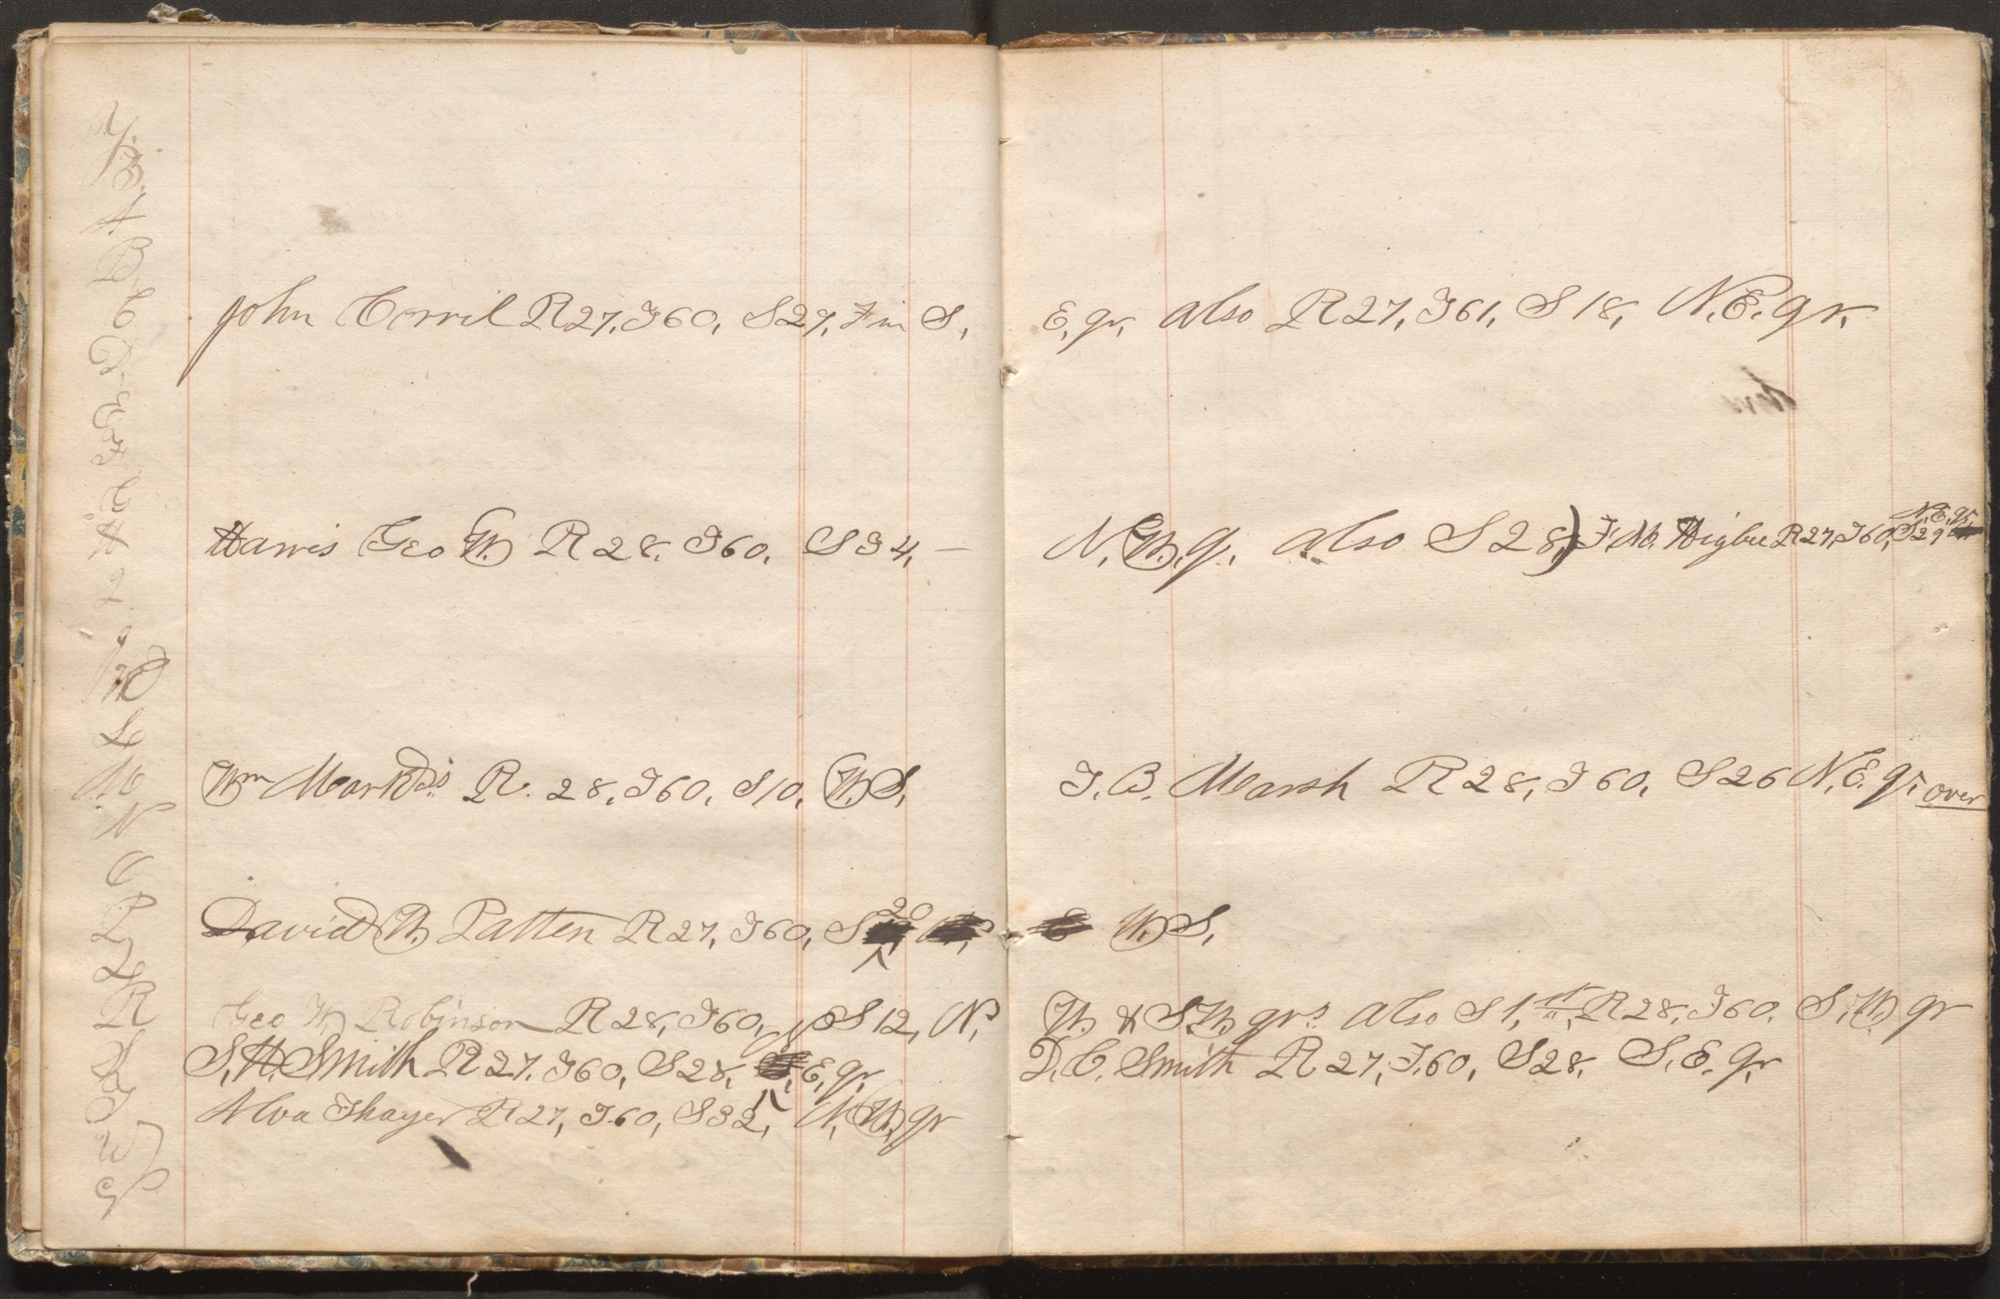 A
B
C
D
E
F
G
H
I
J
K
L
M
N
O
P
Q
R
S
T
W
Y
John Corril R27, T60, S29, F in S, E, qr, also R27, T61, S18, N.E. qr,
Harris Geo W. R28, T60, S34, — N, W, q, also S28,) F. M. Higbee R27, T60, S29 N.E, qr
Wm Marks R. 28, T60, S10, W, S, T. B. Marsh R28, T60, S26 N, E, qr, over
David W, Patten R27, T60, S 20 W, S,
Geo W, Robinson R28, T60, S12, N, W, & S.W, qrs also S1, R28, T60, S, W, qr
S, H. Smith R27, T60, S28, E, qr, D. C. Smith R27, T,60, S28, S. E, qr,
Alva Thayer R27, T60, S32, N, W, qr